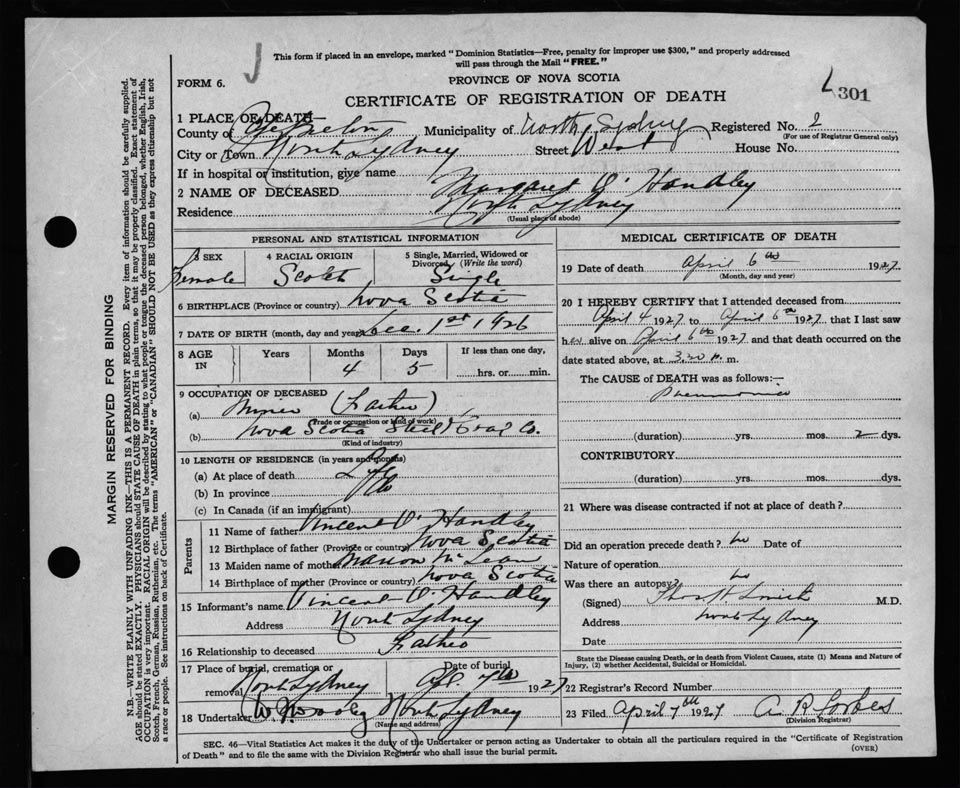 This form if placed in an envelope, marked "Dominion Statistics—Free, penalty for improper use $300," and properly addressed
will pass through the Mail "FREE."
FORM 6.
PROVINCE OF NOVA SCOTIA
CERTIFICATE OF REGISTRATION OF DEATH
301
1 PLACE OF DEATH—
County of Cape Breton Municipality of North Sydney Registered No. 2
(For use of Registrar General only)
City or Town North Sydney Street West House No.
If in hospital or institution, give name
2 NAME OF DECEASED Margaret O'Handley
Residence North Sydney
(Usual place of abode)
PERSONAL AND STATISTICAL INFORMATION
3 SEX Female
4 RACIAL ORIGIN Scotch
5 Single, Married, Widowed or Divorced (Write the word) Single
6 BIRTHPLACE (Province or country) Nova Scotia
7 DATE OF BIRTH (month, day and year) Dec. 1st 1926
8 AGE IN Years Months 4 Days 5 If less than one day, hrs. or min.
9 OCCUPATION OF DECEASED
(a) Miner (Father)
(Trade or occupation or kind of work)
(b) Nova Scotia Steel & Coal Co.
(Kind of industry)
10 LENGTH OF RESIDENCE (in years and months)
(a) At place of death Life
(b) In province
(c) In Canada (if an immigrant)
Parents
11 Name of father Vincent O'Handley
12 Birthplace of father (Province or country) Nova Scotia
13 Maiden name of mother Marion McLean
14 Birthplace of mother (Province or country) Nova Scotia
15 Informant's name Vincent O'Handley
Address North Sydney
16 Relationship to deceased Father
17 Place of burial, cremation or removal North Sydney Date of burial Apl. 7th 1927
18 Undertaker North Sydney
(Name and address)
MEDICAL CERTIFICATE OF DEATH
19 Date of death April 6th 1927
(Month, day and year)
20 I HEREBY CERTIFY that I attended deceased from
April 4 1927 to April 6th 1927, that I last saw
her alive on April 6th 1927 and that death occurred on the
date stated above, at 3.20 m.
The CAUSE of DEATH was as follows:—
Pneumonia
(duration) yrs. mos. 2 dys.
CONTRIBUTORY
(duration) yrs. mos. dys.
21 Where was disease contracted if not at place of death?
Did an operation precede death? No Date of
Nature of operation
Was there an autopsy? No
(Signed) Thos. H. Smith M.D.
Address North Sydney
Date
State the Disease causing Death, or in death from Violent Causes, state (1) Means and Nature of
Injury, (2) whether Accidental, Suicidal or Homicidal.
22 Registrar's Record Number
23 Filed April 7th 1927 A. R. Forbes
(Division Registrar)
SEC. 46—Vital Statistics Act makes it the duty of the Undertaker or person acting as Undertaker to obtain all the particulars required in the "Certificate of Registration
of Death" and to file the same with the Division Registrar who shall issue the burial permit.
(OVER)
MARGIN RESERVED FOR BINDING
N.B.—WRITE PLAINLY WITH UNFADING INK—THIS IS A PERMANENT RECORD. Every item of information should be carefully supplied.
AGE should be stated EXACTLY. PHYSICIANS should STATE CAUSE OF DEATH in plain terms, so that it may be properly classified. Exact statement of
OCCUPATION is very important. RACIAL ORIGIN will be described by stating to what people or tongue the deceased person belonged, whether English, Irish,
Scotch, French, German, Russian, Ruthenian, etc. The terms "AMERICAN" or "CANADIAN" SHOULD NOT BE USED as they express citizenship but not
a race or people. See instructions on back of Certificate.